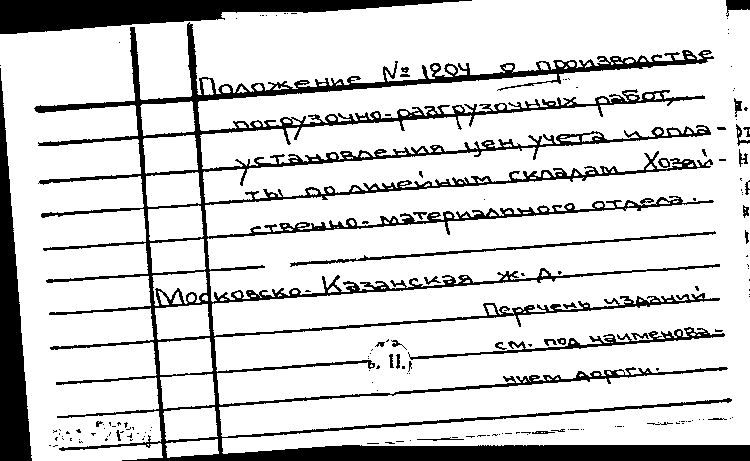 Положение № 1204 о производстве
погрузочно-разгрузочных работ,
установления цен, учета и опла-
ты по линейным складам Хозяй-
ственно-материального отдела.
Московско-Казанская ж. д.
Перечень изданий
см. под наименова-
нием дороги.